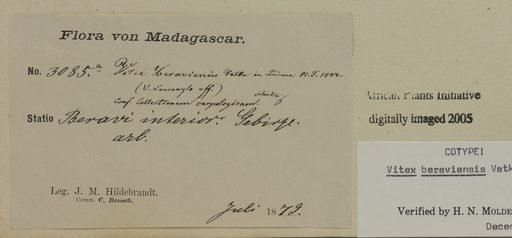 Flora von Madagascar.
No. 3085.a Vitex beraviensis Vatke in Linnea
Conf. Collectionem carpologicam.
Statio Beravi interior. Gebirge.
arb.
Leg. J. M. Hildebrandt.
Comm. C. Rensch.
Juli 1879.
African Plants Initiative
digitally imaged 2005
COTYPE!
Vitex beraviensis Vatk
Verified by H. N. MOLDE
Decem